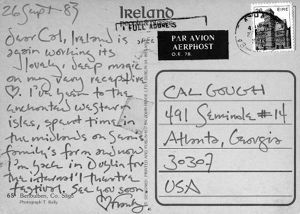 26 Sept. 83
Ireland
Dear Cal, Ireland is
again working its
lovely, deep magic
on my very receptive
♡. I've been to the
enchanted western
isles, spent time in
the midlands on
family's farm and now
I'm back in Dublin for
the internat'l theatre
festival. See you soon
65 Benbulben, Co. Sligo
Photograph T. Kelly
FULL ADDRESS
PAR AVION
AERPHOST
O.E. 78.
EIRE
CAL GOUGH
491 Seminole #14
Atlanta, Georgia
30307
USA